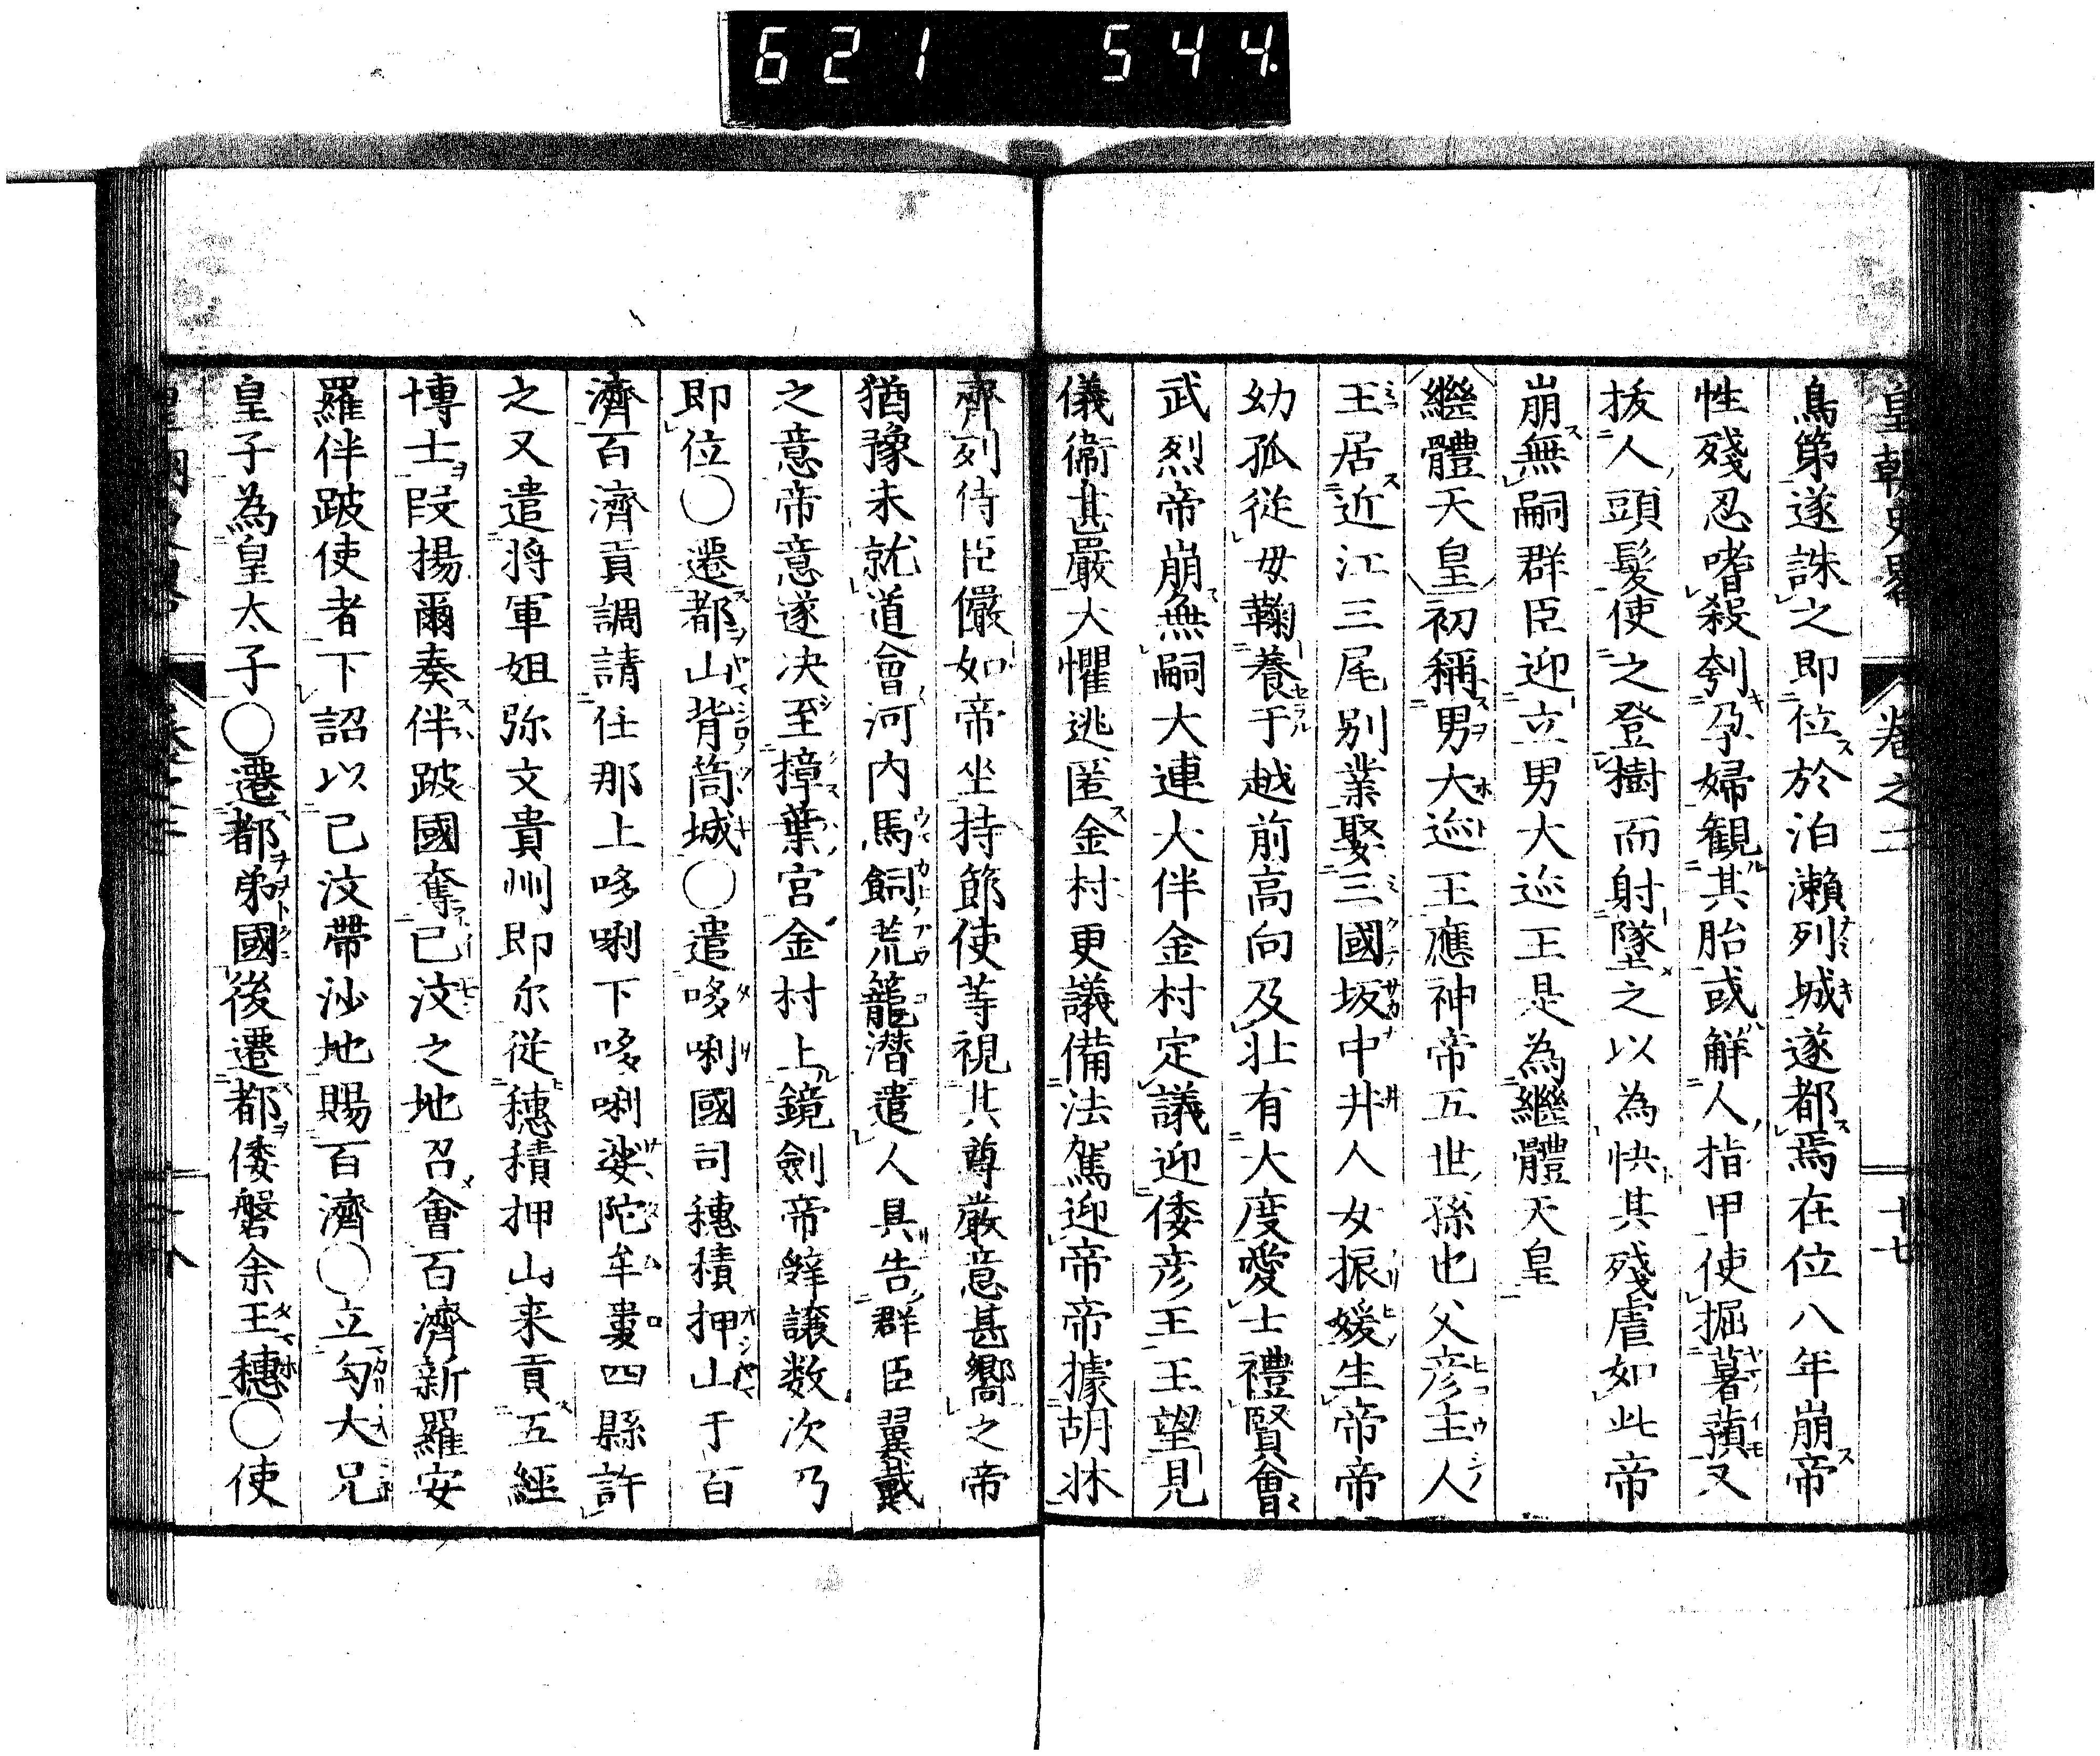 621 544.
皇朝史畧 卷之二 十七
鳥第遂誅之即位於泊瀨列城遂都焉在位八年崩帝
性殘忍嗜殺刳孕婦観其胎或解人指甲使掘暑蕷又
拔人頭髮使之登樹而射墜之以為快其殘虐如此帝
崩無嗣群臣迎立男大迹王是為繼體天皇
繼體天皇初稱男大迹王應神帝五世孫也父彦主人
王居近江三尾別業娶三國坂中井人女振媛生帝帝
幼孤從母鞠養于越前高向及壯有大度愛士禮賢會
武烈帝崩無嗣大連大伴金村定議迎倭彦王王望見
儀衞甚嚴大懼逃匿金村更議備法駕迎帝帝據胡牀
齊列侍臣儼如帝坐持節使等視其尊嚴意甚嚮之帝
猶豫未就道會河内馬飼荒籠潜遣人具告群臣翼戴
之意帝意遂决至樟葉宮金村上鏡劍帝辭讓数次乃
即位○遷都山背筒城○遣哆唎國司穗積押山于百
濟百濟貢調請任那上哆唎下哆唎娑陀牟婁四縣許
之又遣將軍姐弥文貴州即尔從穗積押山来貢五經
博士段揚爾奏伴跛國奪已汶之地召會百濟新羅安
羅伴跛使者下詔以己汶帶沙地賜百濟○立勾大兄
皇子為皇太子○遷都弟國後遷都倭磐余玉穗○使